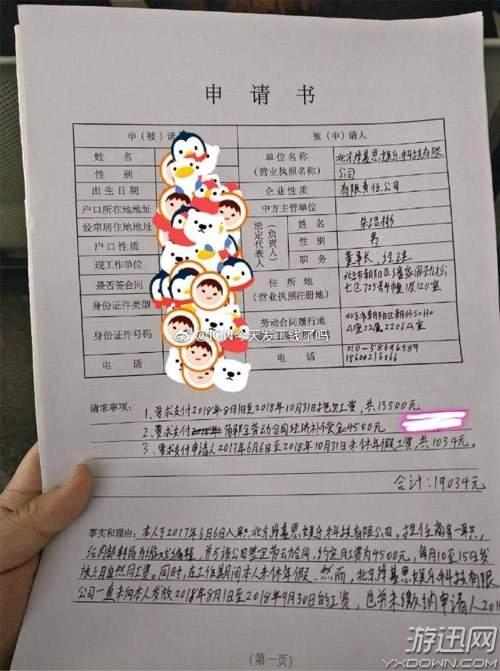 申 请 书
申（被）请
被（申）请人
姓 名
单位名称
（营业执照名称）
有限
公司
性 别
出生日期
企业性质
有限责任公司
户口所在地地址
中方主管单位
经常居住地地址
法定代表人
（负责人）
姓 名
户口性质
性 别
男
现工作单位
职 务
董事长、经理
是否签合同
住 所 地
（营业执照注册地）
北京市朝阳区
身份证件类型
身份证件号码
劳动合同履行地
北京市朝阳区朝外SOHO
电 话
电 话
010-58696984
18600216066
@IGN今天发工钱了吗
请求事项：
1、要求支付2018年8月1日至2018年10月31日拖欠工资，共13500元
2、要求支付 劳动合同经济补偿金4500元
3、要求支付申请人2017年6月6日至2018年10月31日未休年假工资，共1034元。
合计：19034元
事实和理由：本人于2017年6月6日入职北京 娱乐科技有限公司，担任商务一职，
并与该公司签定劳动合同，约定月工资为4500元，每月10至15日发
放上月自然月工资。同时，在工作期间本人未休年假、然而，北京 娱乐科技有限
公司一直未向本人发放2018年8月1日至2018年9月30日的工资，也并未缴纳申请人201
（第一页）
游迅网
YXDOWN.COM